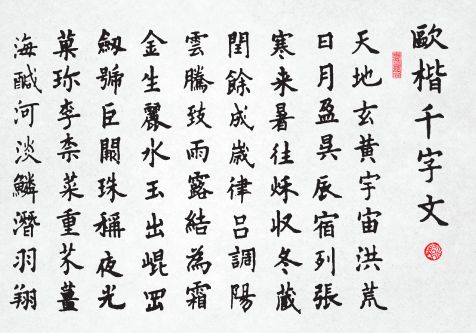 歐楷千字文
天地玄黃宇宙洪荒
日月盈昃辰宿列張
寒来暑往秌収冬蔵
閏餘成嵗律呂調陽
雲騰致雨露結為霜
金生麗水玉出崐岡
劔號巨闕珠稱夜光
菓珎李柰菜重芥薑
海醎河淡鱗潛羽翔